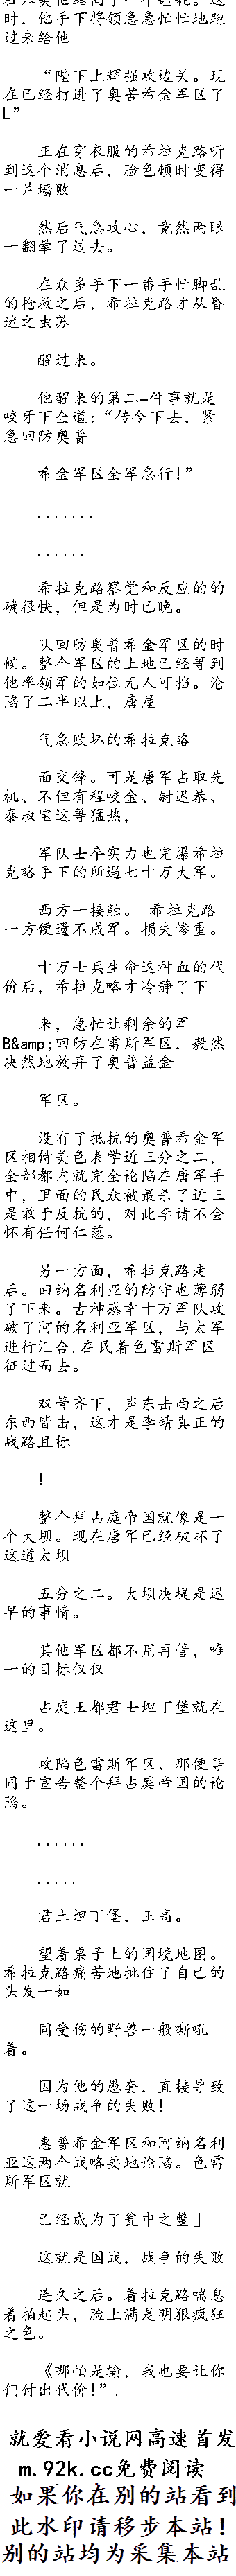 时，他手下将领急急忙忙地跑
过来给他
“陛下上辉强攻边关。现
在已经打进了奥苦希金军区了
L”
正在穿衣服的希拉克路听
到这个消息后，脸色顿时变得
一片墙败
然后气急攻心，竟然两眼
一翻晕了过去。
在众多手下一番手忙脚乱
的抢救之后，希拉克路才从昏
迷之虫苏
醒过来。
他醒来的第二=件事就是
咬牙下全道：“传令下去，紧
急回防奥普
希金军区全军急行！”
．．．．．．．
．．．．．．
希拉克路察觉和反应的的
确很快，但是为时已晚。
队回防奥普希金军区的时
候。整个军区的土地已经等到
他率领军的如位无人可挡。沦
陷了二半以上，唐屋
气急败坏的希拉克略
面交锋。可是唐军占取先
机、不但有程咬金、尉迟恭、
泰叔宝这等猛热，
军队士卒实力也完爆希拉
克略手下的所遇七十万大军。
西方一接触。 希拉克路
一方便遗不成军。损失惨重。
十万士兵生命这种血的代
价后，希拉克略才冷静了下
来，急忙让剩余的军
B&amp;回防在雷斯军区，毅然
决然地放弃了奥普益金
军区。
没有了抵抗的奥普希金军
区相侍美色表学近三分之二，
全部都内就完全论陷在唐军手
中，里面的民众被最杀了近三
是敢于反抗的，对此李请不会
怀有任何仁慈。
另一方面，希拉克路走
后。回纳名利亚的防守也薄弱
了下来。古神感幸十万军队攻
破了阿的名利亚军区，与太军
进行汇合.在民着色雷斯军区
征过而去。
双管齐下，声东击西之后
东西皆击，这才是李靖真正的
战路且标
！
整个拜占庭帝国就像是一
个大坝。现在唐军已经破坏了
这道太坝
五分之二。大坝决堤是迟
早的事情。
其他军区都不用再管，唯
一的目标仅仅
占庭王都君士坦丁堡就在
这里。
攻陷色雷斯军区、那便等
同于宣告整个拜占庭帝国的论
陷。
．．．．．．
．．．．．
君土坦丁堡，王高。
望着桌子上的国境地图。
希拉克路痛苦地批住了自己的
头发一如
同受伤的野兽一般嘶吼
着。
因为他的愚套，直接导致
了这一场战争的失败！
惠普希金军区和阿纳名利
亚这两个战略要地论陷。色雷
斯军区就
已经成为了瓮中之鳖」
这就是国战，战争的失败
连久之后。着拉克路喘息
着拍起头，脸上满是明狠疯狂
之色。
《哪怕是输，我也要让你
们付出代价！”．－
就爱看小说网高速首发
m.92k.cc免费阅读
如果你在别的站看到
此水印请移步本站！
别的站均为采集本站